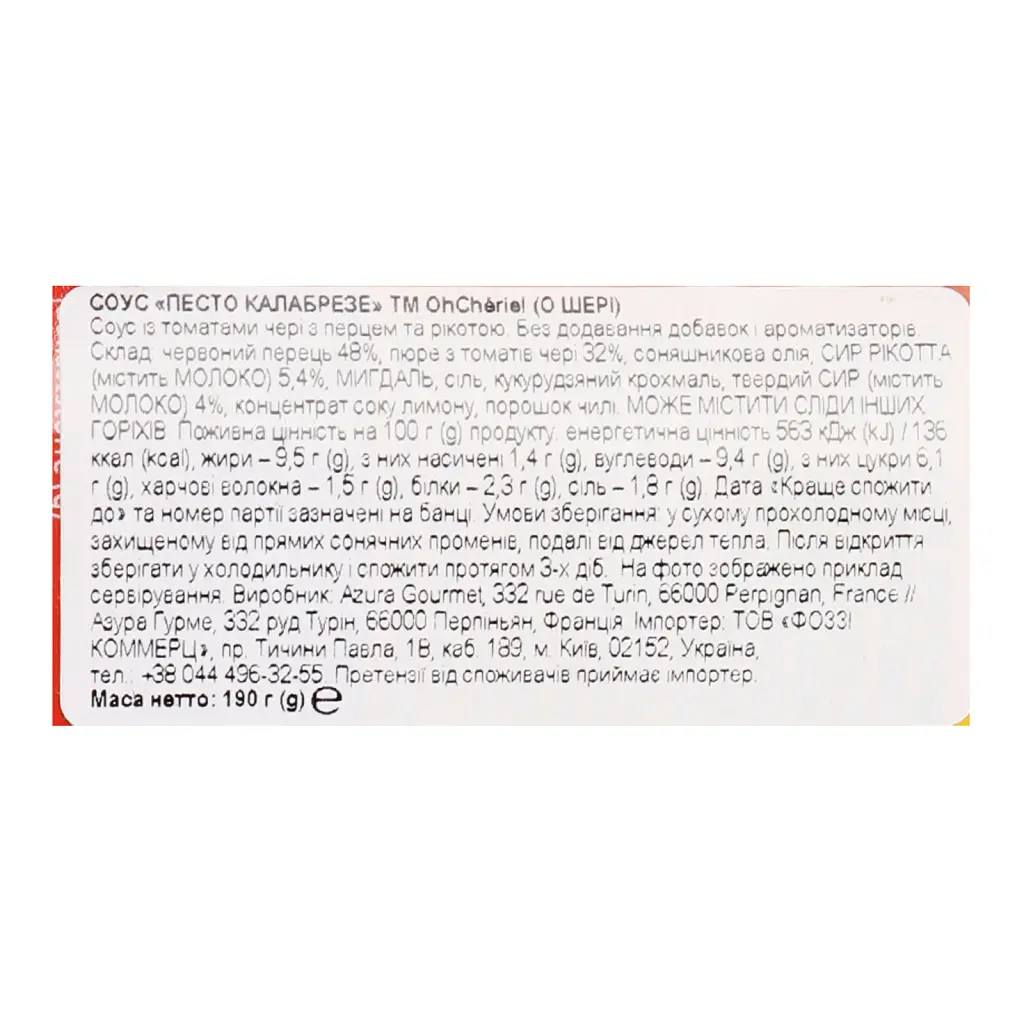 СОУС «ПЕСТО КАЛАБРЕЗЕ» ТМ OhChérie! (О ШЕРІ)
Соус із томатами чері з перцем та рікотою. Без додавання добавок і ароматизаторів.
Склад: червоний перець 48%, пюре з томатів чері 32%, соняшникова олія, СИР РІКОТТА
(містить МОЛОКО) 5,4%, МИГДАЛЬ, сіль, кукурудзяний крохмаль, твердий СИР (містить
МОЛОКО) 4%, концентрат соку лимону, порошок чилі. МОЖЕ МІСТИТИ СЛІДИ ІНШИХ
ГОРІХІВ. Поживна цінність на 100 г (g) продукту: енергетична цінність 563 кДж (kJ) / 136
ккал (kcal), жири – 9,5 г (g), з них насичені 1,4 г (g), вуглеводи – 9,4 г (g), з них цукри 6,1
г (g), харчові волокна – 1,5 г (g), білки – 2,3 г (g), сіль – 1,8 г (g). Дата «Краще спожити
до» та номер партії зазначені на банці. Умови зберігання: у сухому прохолодному місці,
захищеному від прямих сонячних променів, подалі від джерел тепла. Після відкриття
зберігати у холодильнику і спожити протягом 3-х діб. На фото зображено приклад
сервірування. Виробник: Azura Gourmet, 332 rue de Turin, 66000 Perpignan, France //
Азура Гурме, 332 руд Турін, 66000 Перпіньян, Франція. Імпортер: ТОВ «ФОЗЗІ
КОММЕРЦ», пр. Тичини Павла, 1В, каб. 189, м. Київ, 02152, Україна,
тел.: +38 044 496-32-55. Претензії від споживачів приймає імпортер.
Маса нетто: 190 г (g) ℮